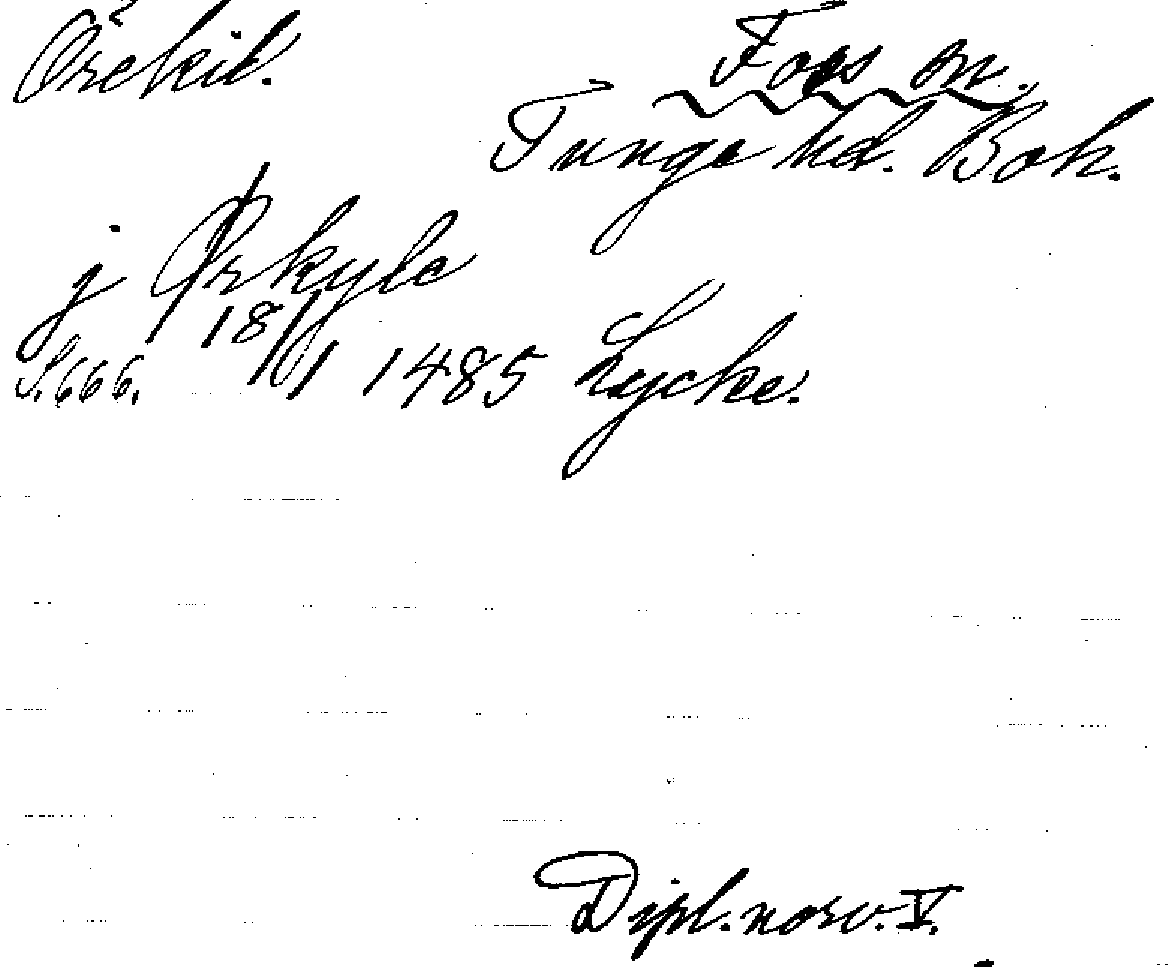 Örekil. Foss sn.
Tunge hd. Boh.
j Ørkyle
S. 666. 18/11 1485 Lycke.
Dipl. norv. V.